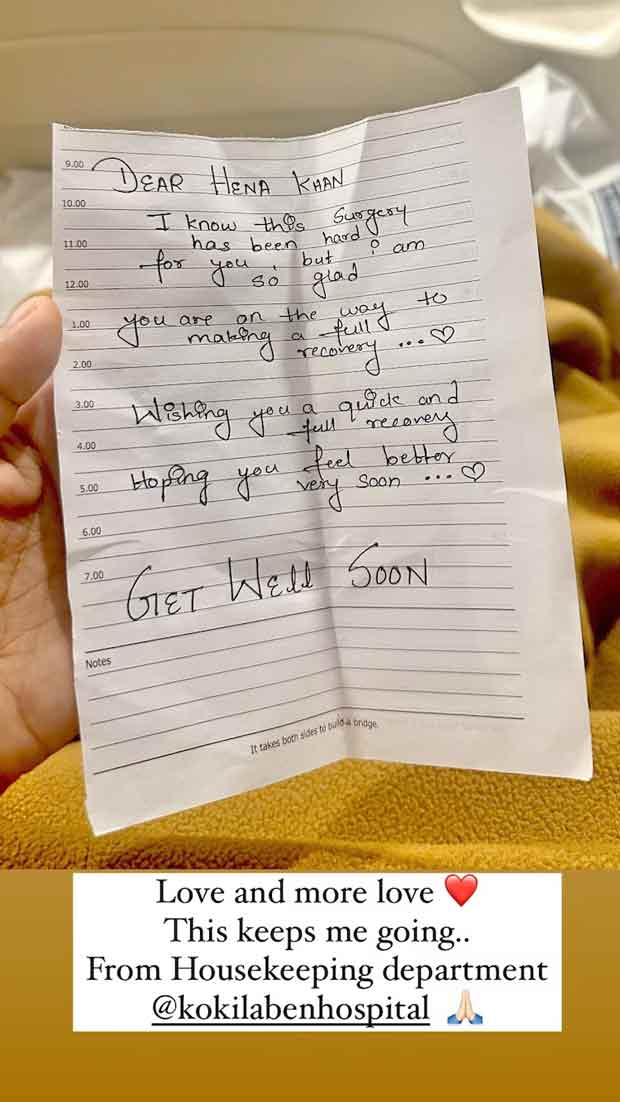 9.00
DEAR HENA KHAN
10.00
I know this surgery
11.00
has been hard
for you, but i am
12.00
so glad
1.00
you are on the way to
making a full
recovery ... ♡
2.00
3.00
Wishing you a quick and
full recovery
4.00
Hoping you feel better
5.00
very soon ... ♡
6.00
7.00
GET WEll SOON
Notes
It takes both sides to build a bridge.
Love and more love ❤️
This keeps me going..
From Housekeeping department
@kokilabenhospital 🙏🏻